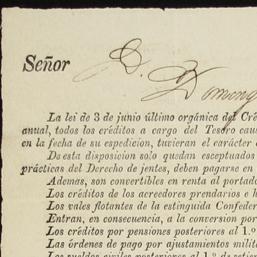 Señor D. Doming
La lei de 3 de junio último orgánica del Cré
anual, todos los créditos a cargo del Tesoro cau
en la fecha de su espedicion, tuvieran el carácter
De esta disposicion solo quedan esceptuados
prácticas del Derecho de jentes, deben pagarse en
Ademas, son convertibles en renta al portado
Los créditos de los acreedores prendarios e h
Los vales flotantes de la estinguida Confeder
Entran, en consecuencia, a la conversion por
Los créditos por pensiones posteriores al 1.º
Las órdenes de pago por ajustamientos milit
Los sueldos civiles posteriores al 1.º de setier